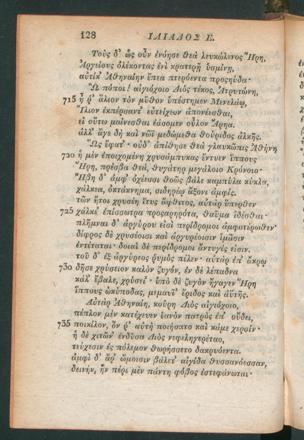 128 ΙΛΙΑΔΟΣ Ε.
Τοὺς δ' ὡς οὖν ἐνόησε θεὰ λευκώλενος Ἥρη,
Ἀργείους ὀλέκοντας ἐνὶ κρατερῇ ὑσμίνῃ,
αὐτίκ' Ἀθηναίην ἔπεα πτερόεντα προςηύδα·
Ὢ πόποι! αἰγιόχοιο Διὸς τέκος, Ἀτρυτώνη,
715 ἦ ῥ' ἅλιον τὸν μῦθον ὑπέστημεν Μενελάῳ,
Ἴλιον ἐκπέρσαντ' εὐτείχεον ἀπονέεσθαι,
εἰ οὕτω μαίνεσθαι ἐάσομεν οὖλον Ἄρηα.
ἀλλ' ἄγε δὴ καὶ νῶϊ μεδώμεθα θούριδος ἀλκῆς.
Ὣς ἔφατ'· οὐδ' ἀπίθησε θεὰ γλαυκῶπις Ἀθήνη
720 ἡ μὲν ἐποιχομένη χρυσάμπυκας ἔντυεν ἵππους
Ἥρη, πρέσβα θεὰ, θυγάτηρ μεγάλοιο Κρόνοιο·
Ἥβη δ' ἀμφ' ὀχέεσσι θοῶς βάλε καμπύλα κύκλα,
χάλκεα, ὀκτάκνημα, σιδηρέῳ ἄξονι ἀμφίς.
τῶν ἤτοι χρυσέη ἴτυς ἄφθιτος, αὐτὰρ ὕπερθεν
725 χάλκε' ἐπίσσωτρα προςαρηρότα, θαῦμα ἰδέσθαι·
πλῆμναι δ' ἀργύρου εἰσὶ περίδρομοι ἀμφοτέρωθεν·
δίφρος δὲ χρυσέοισι καὶ ἀργυρέοισιν ἱμᾶσιν
ἐντέταται· δοιαὶ δὲ περίδρομοι ἄντυγές εἰσιν.
τοῦ δ' ἐξ ἀργύρεος ῥυμὸς πέλεν· αὐτὰρ ἐπ' ἄκρῳ
730 δῆσε χρύσειον καλὸν ζυγόν, ἐν δὲ λέπαδνα
κάλ' ἔβαλε, χρύσει'· ὑπὸ δὲ ζυγὸν ἤγαγεν Ἥρη
ἵππους ὠκύποδας, μεμαυῖ' ἔριδος καὶ ἀϋτῆς.
Αὐτὰρ Ἀθηναίη, κούρη Διὸς αἰγιόχοιο,
πέπλον μὲν κατέχευεν ἑανὸν πατρὸς ἐπ' οὔδει,
735 ποικίλον, ὅν ῥ' αὐτὴ ποιήσατο καὶ κάμε χερσίν·
ἡ δὲ χιτῶν' ἐνδῦσα Διὸς νεφεληγερέταο,
τεύχεσιν ἐς πόλεμον θωρήσσετο δακρυόεντα.
ἀμφὶ δ' ἄρ' ὤμοισιν βάλετ' αἰγίδα θυσσανόεσσαν,
δεινήν, ἣν πέρι μὲν πάντη φόβος ἐστεφάνωται·